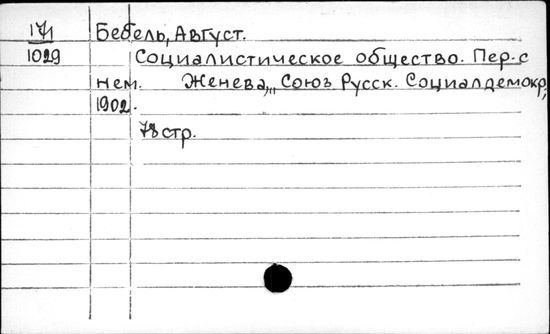 171 Бебель, Август.
1029 Социалистическое общество. Пер. с
нем. Женева, „Союз Русск. Социалдемокр,"
1902.
78 стр.